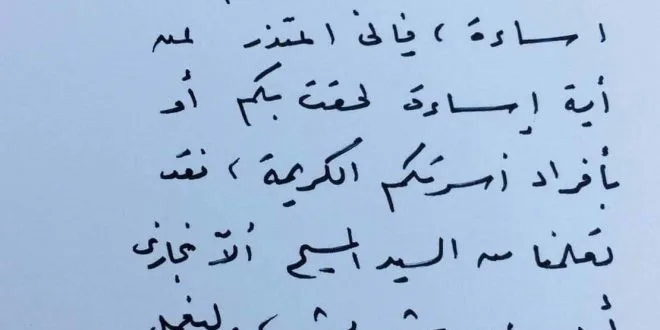 اساءة ، فإني اعتذر لكم
أية إساءة لحقت بكم أو
بأفراد أسرتكم الكريمة ، فقد
تعلمنا من السيد المسيح ألا نجازي